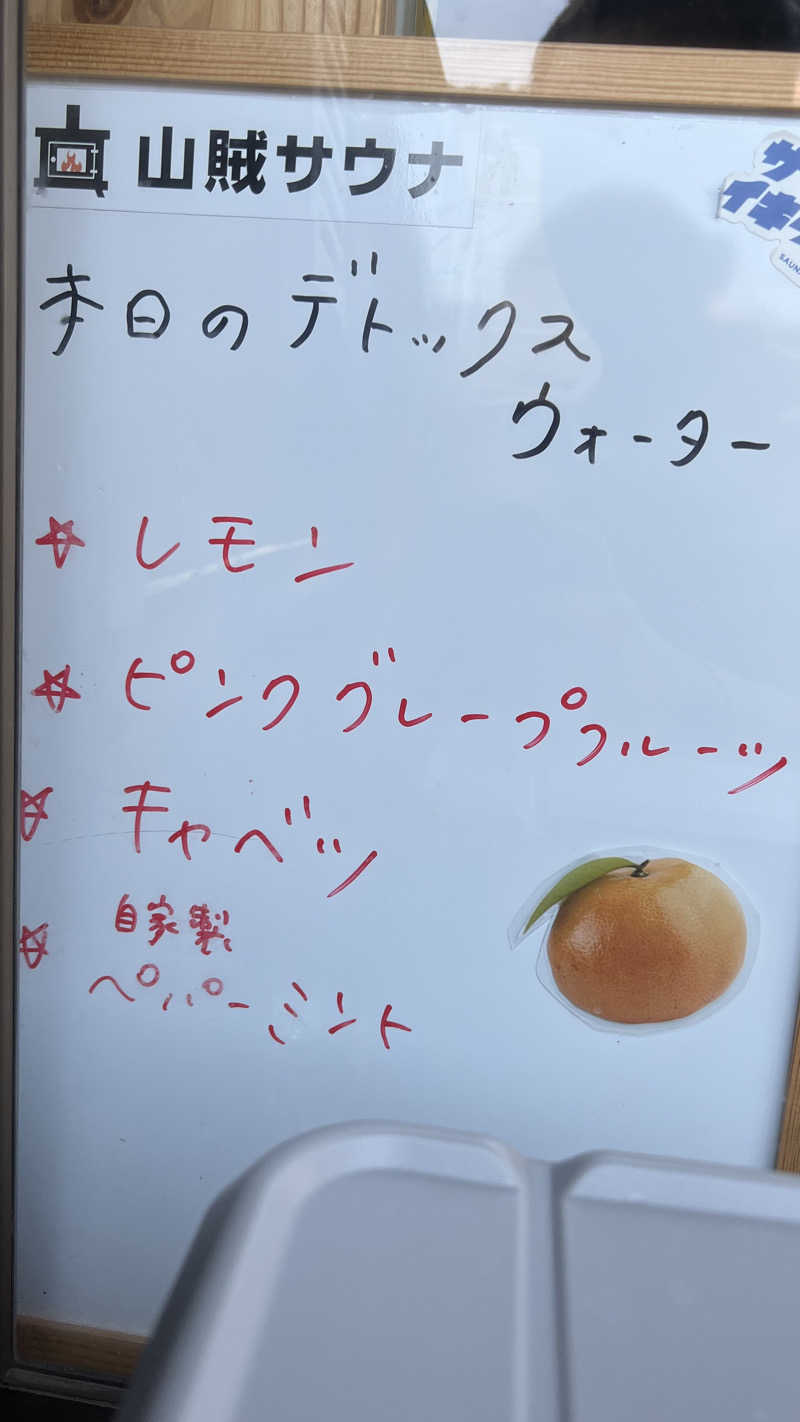 山賊サウナ
本日のデトックス
ウォーター
☆ レモン
☆ ピンクグレープフルーツ
☆ キャベツ
☆ 自家製
ペパーミント